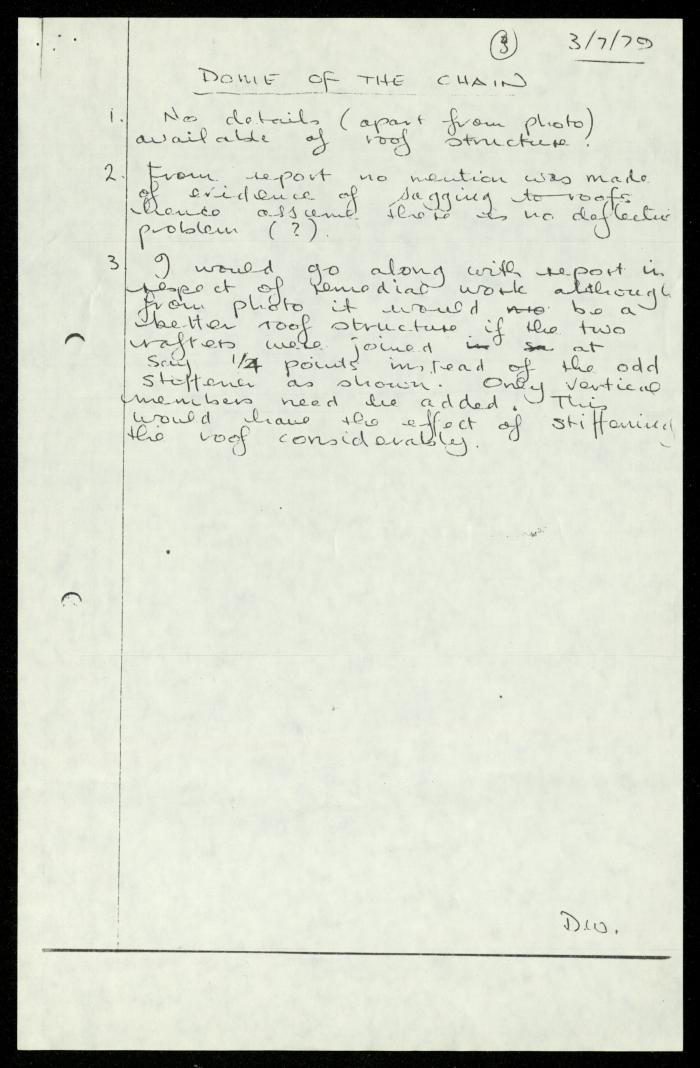 ③ 3/7/79
DOME OF THE CHAIN
1. No details (apart from photo)
available of roof structure.
2. From report no mention was made
of evidence of sagging to roofs
hence assume there is no deflectio
problem (?).
3 I would go along with report in
respect of remedial work although
from photo it would be a
better roof structure if the two
rafters were joined in at
say 1/4 points instead of the odd
stiffener as shown. Only vertical
members need be added. This
would have the effect of stiffening
the roof considerably.
DW.